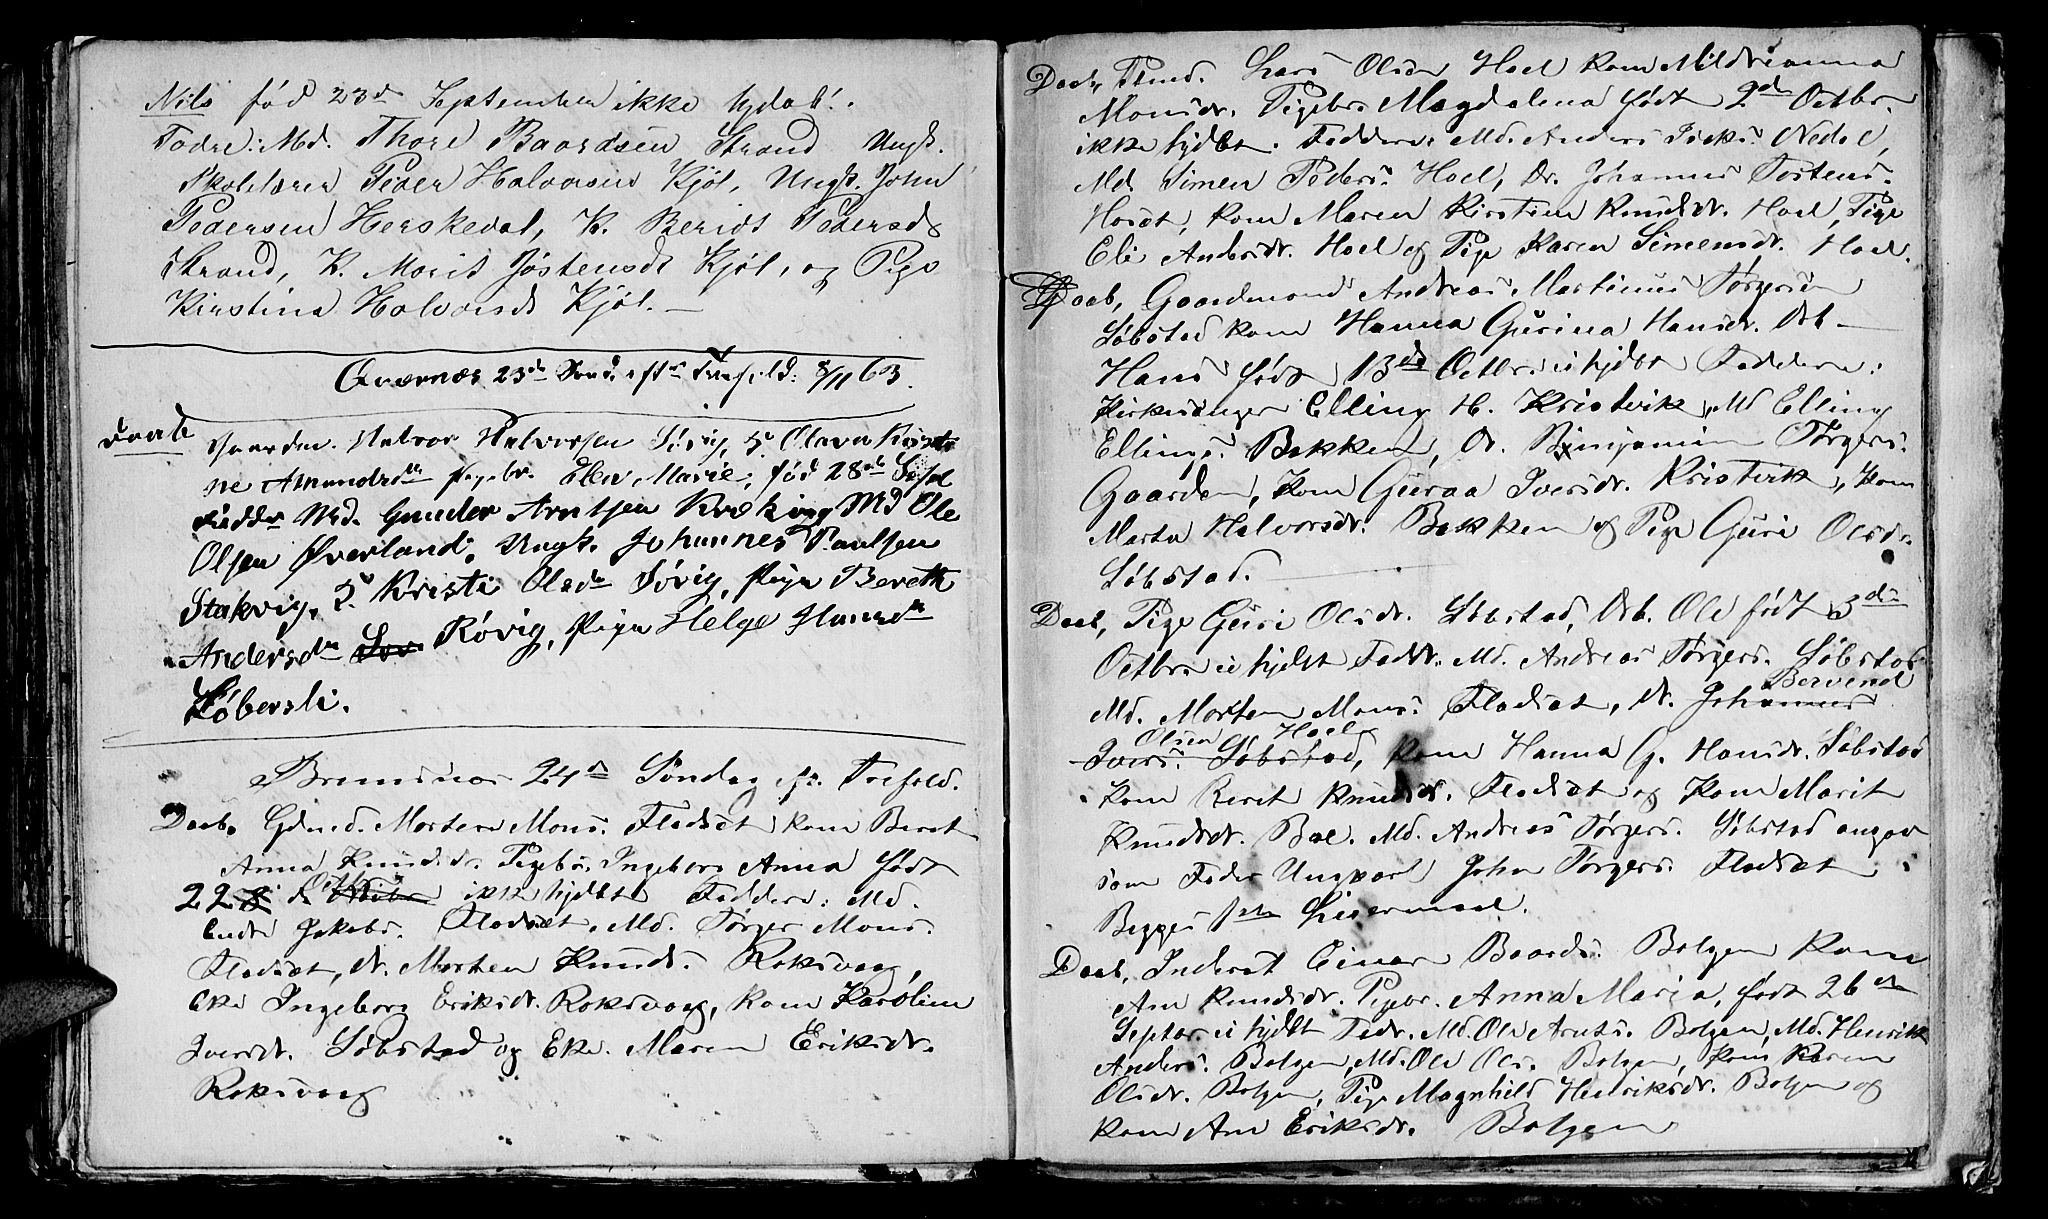 Nils fød 23de September ikke hjdøbt.
Fadre: Md. Thore Baardsen Strand Ungk.
Skolelærer Peder Halvorsen Kjøl, Ungk. John
Pedersen Herskedal, K. Berit Pedersd
Strand, K. Marit Jøstensd Kjøl, og Pige
Kirstina Halvorsd Kjøl. —
Qværnæs 23de Sønd. eft. Trefold: 8/11 63.
Daab
Gaardm. Halvor Halvorsen Sørvig, Olava
ne Amundsdtr Pigebr. Elen Marie, fød 28de Septbr
Faddr Md. Gunder Arntsen Md Ole
Olsen Øverland, Ungk. Johannes Paulsen
Stakvig, Kristi Olsdr Sørvig, Pige Bereth
Andersdr Sør Røvig, Pige Helge Hansdr
Købersli.
Bremsnes 24de Søndag ef. Trefold.
Daab, Gdmd. Morten Mons. Fladset kone Beret
Anna Knudsdr. Pigebr. Ingeborg Anna født
22 de Octbr ikke hjdøbt Faddere: Md.
Endre Jakobs. Fladset, Md. Tørger Mons.
Fladset, Dr. Morten Knuds. Roksvaag,
Eke Ingeborg Eriksdr. Roksvaag, kone Karoline
Iversdr. Løbstad og Eke. Maren Eriksdr.
Roksvaag
Daab, Lars Olsen Hoel kone Mildrianna
Monsdr. Pigebr. Magdalena født 2de Octbr.
ikke hjdbt. Faddere: Md. Anders Isaks. Nedal,
Md. Simen Peders. Hoel, Dr. Johannes Tostens.
Hoset, kone Maren Kirstine Knudsdr. Hoel, Pige
Eli Andersdr. Hoel og Pige Karen Simensdr. Hoel.
Daab, Gaardmand Andreas Martinus Tørgersen
Løbstad kone Hanna Gurina Hansdr. Drb.
Hans født 13de Octbr. ei hjdbt Faddere:
Kirkesanger Elling H. Kristvik, Md Elling
Ellings. Bakken, Dr. Benjamin Tørgers.
Gaarden, kone Guraa Iversdr. Kristvik, kone
Marta Halvorsdr. Bakken og Pige Guri Olsdr.
Løbstad.
Daab, Pige Guri Olsdr. Løbstad, Drb. Ole født 3de
Octbr. ei hjdbt Faddr. Md. Andreas Tørgers. Løbstad
Md. Morten Mons. Fladset, Dr. Johannes Berend
Ivers. Olsen Løbstad, Hoel, kone Hanna G. Hansdr. Løbstad
kone Beret Knudsdr. Fladset og kone Marit
Knudsdr. Boe. Md. Andreas Tørgers. Løbstad angav
som Fader Ungkarl John Tørgers. Fladset
Begges 1ste Leiermaal.
Daab, Inderst Einar Baards. Bolgen kone
Ane Knudsdr. Pigebr. Anna Maria, født 26de
Septbr ei hjdbt Fadr. Md. Ole Arnts. Bolgen, Md. Henrik
Anders. Bolgen, Md. Ole Ols. Bolgen, kone Karen
Olsdr. Bolgen, Pige Magnhild Henriksdr. Bolgen og
kone Ane Eriksdr. Bolgen